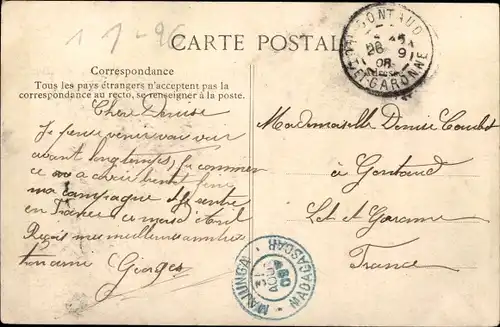 17-96
CARTE POSTALE
Correspondance
Tous les pays étrangers n'acceptent pas la
correspondance au recto, se renseigner à la poste.
Chère Denise
Je pense venir vous voir
avant longtemps, je commence
a avoir bientôt fini
ma campagne et rentre
en France
Reçois mes meilleures amitiés
ton ami Georges
GONTAUD
26 9
08
LOT-ET-GARONNE
Mademoiselle Denise
à Gontaud
Lot et Garonne
France
MAJUNGA
31
AOUT
08
MADAGASCAR